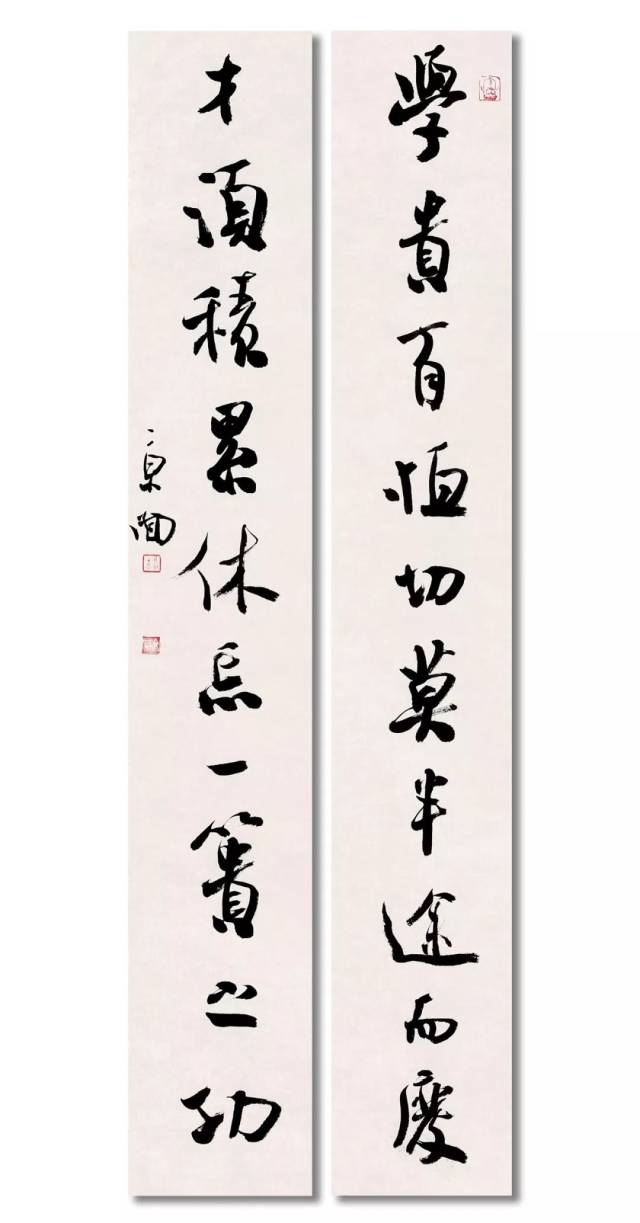 學貴有恒切莫半途而廢
才須積累休忘一簣之功